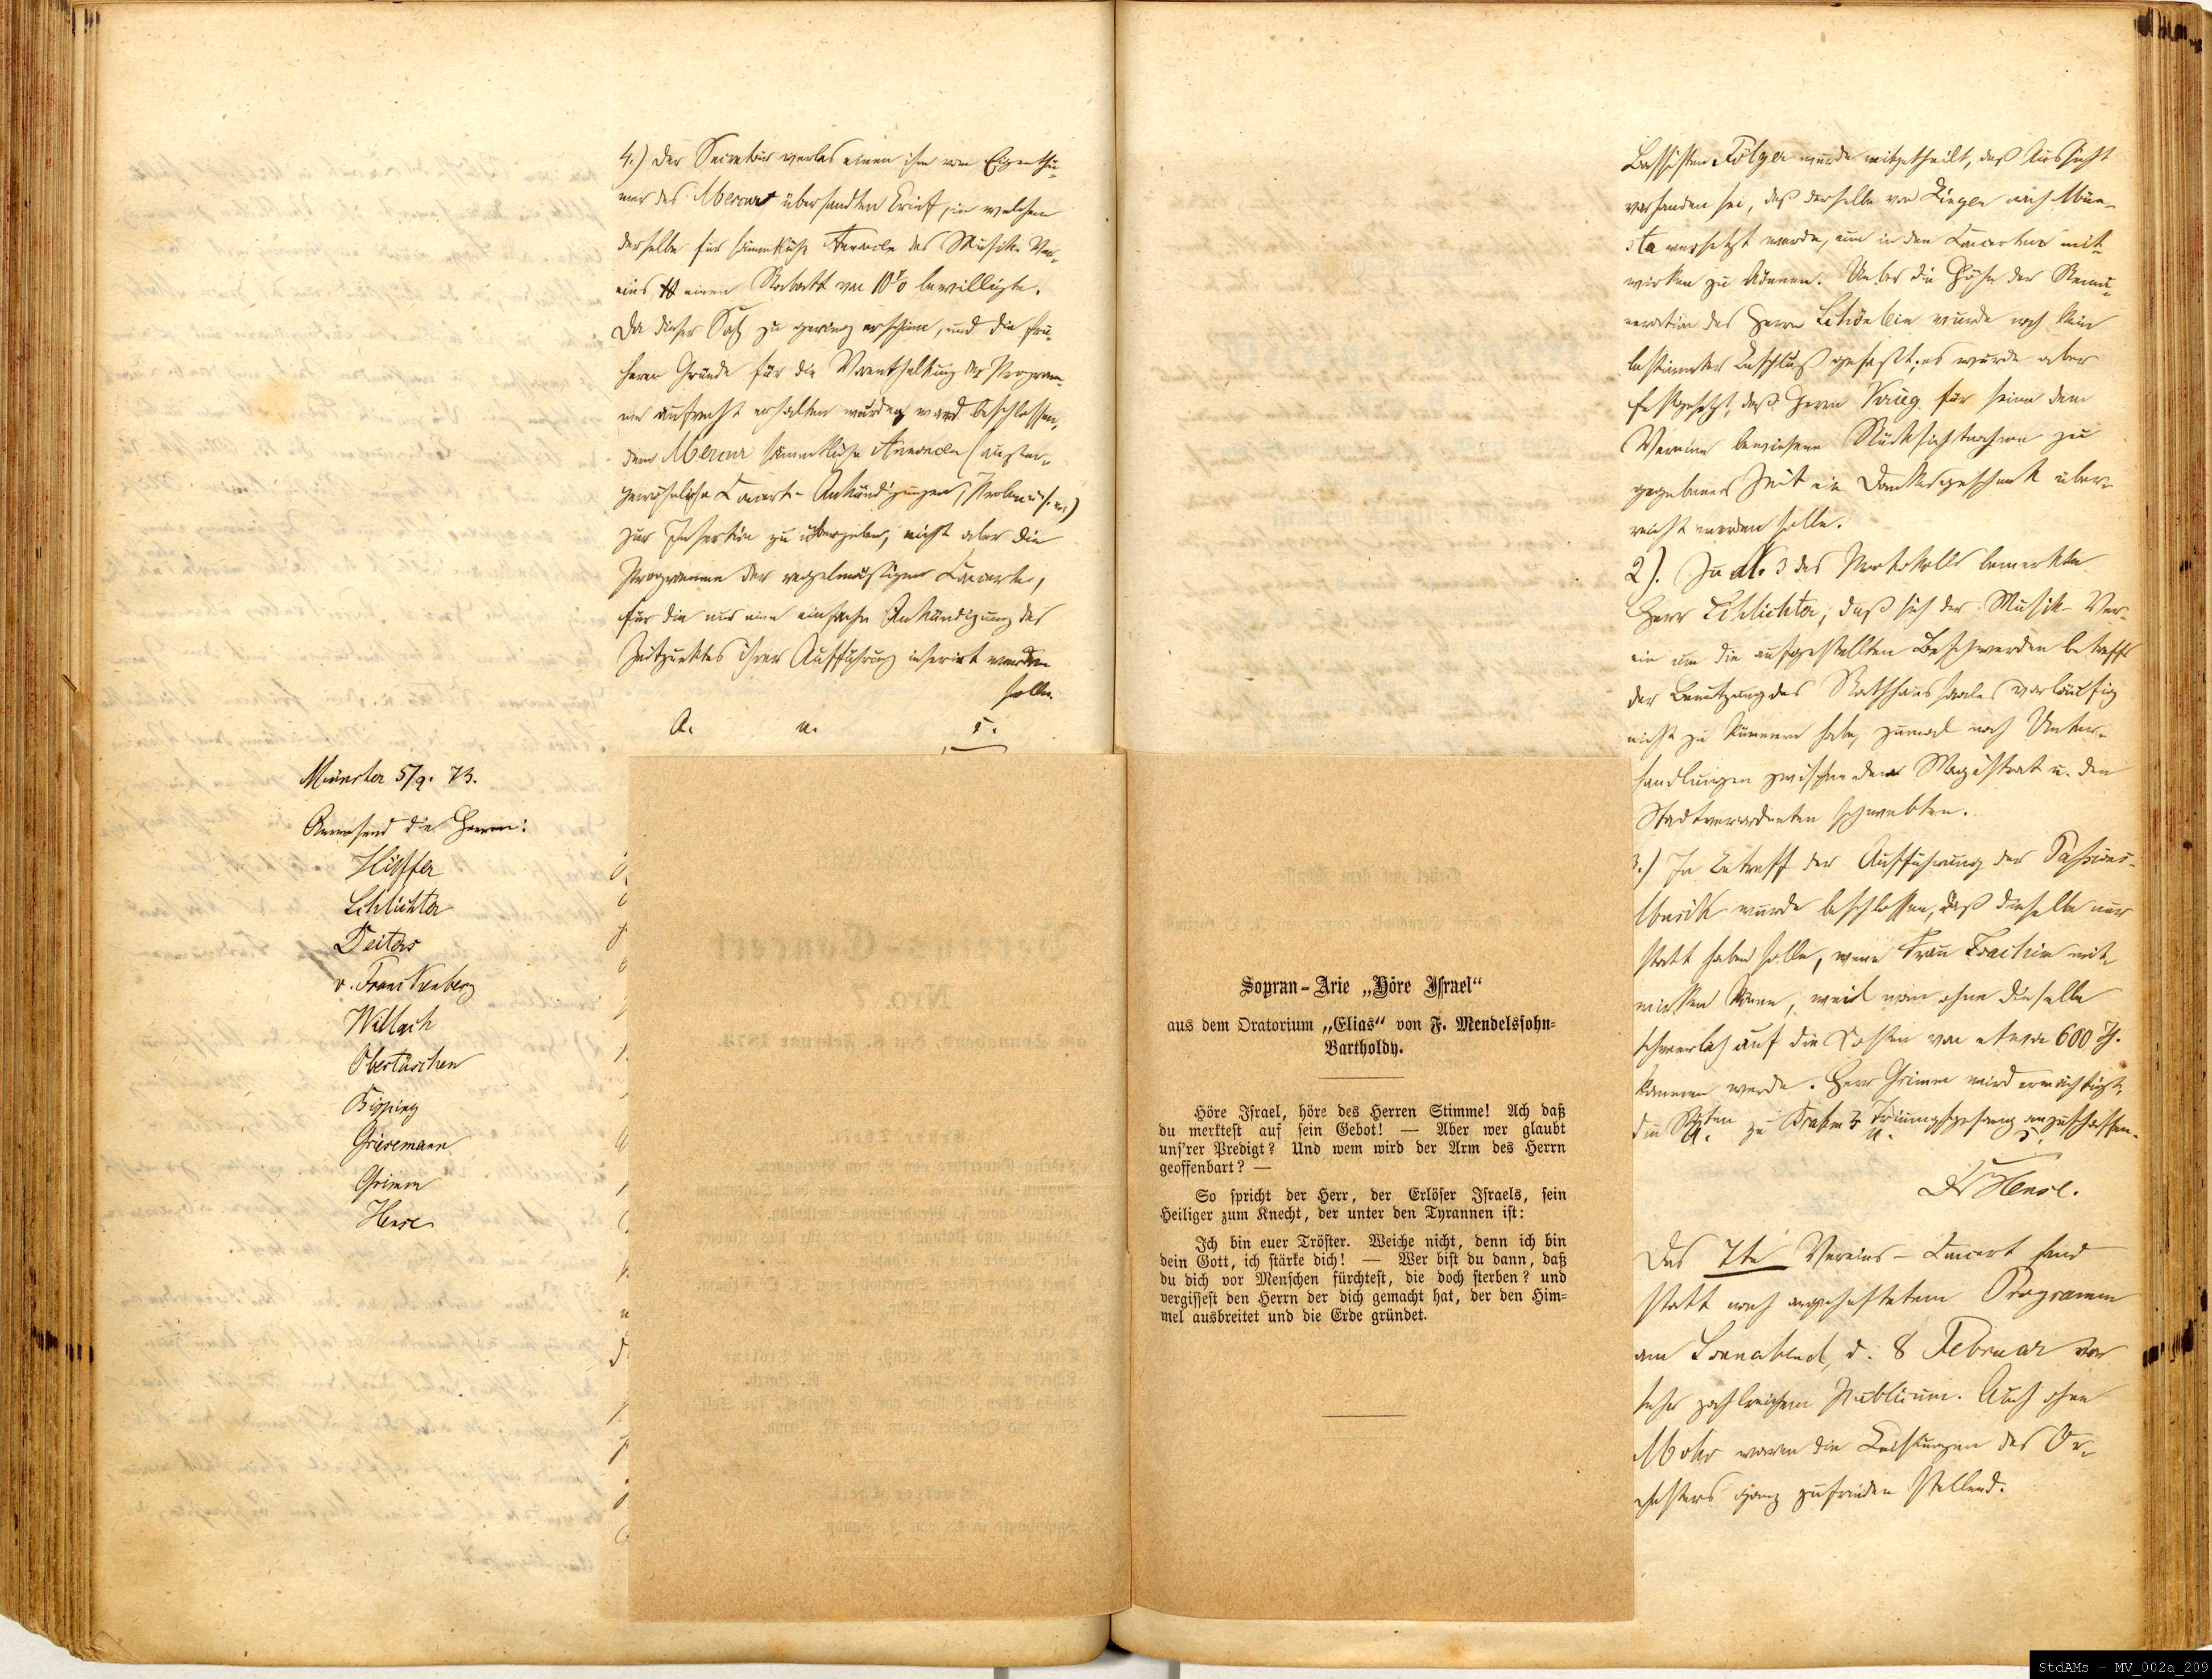 4.) Der Secretär verlas einen ihm vom Eigenthü-
mer des Mercur übersandten Brief, in welchem
derselbe für sämmtliche Annoncen des Musik-Ver-
eins einen Rabatt von 10% bewilligte.
Da dieser Satz zu gering erschien, und die frü-
heren Gründe für die Vorenthaltung der Program-
me aufrecht erhalten wurden, ward beschlossen,
dem Mercur sämmtliche Annoncen (außer-
gewöhnliche Concert-Ankündigungen, Proben u.s.w.)
zur Insertion zu übergeben, nicht aber die
Programme der regelmäßigen Concerte,
für die nur eine einfache Ankündigung des
Zeitpunktes ihrer Aufführung inserirt werden
solle.
V. u.
Münster 5/2. 73.
Anwesend die Herren:
Hüffer
Schlichter
Deiters
v. Frankenberg
Wittach
Obertüschen
Bisping
Griesemann
Grimm
Hense
Sopran-Arie „Höre Israel“
aus dem Oratorium „Elias“ von F. Mendelssohn-
Bartholdy.
Höre Israel, höre des Herren Stimme! Ach daß
du merktest auf sein Gebot! — Aber wer glaubt
uns'rer Predigt? Und wem wird der Arm des Herrn
geoffenbart? —
So spricht der Herr, der Erlöser Israels, sein
Heiliger zum Knecht, der unter den Tyrannen ist:
Ich bin euer Tröster. Weiche nicht, denn ich bin
dein Gott, ich stärke dich! — Wer bist du dann, daß
du dich vor Menschen fürchtest, die doch sterben? und
vergissest den Herrn der dich gemacht hat, der den Him-
mel ausbreitet und die Erde gründet.
Bassisten Fölger wurde mitgetheilt, daß Aussicht
vorhanden sei, daß derselbe von nach Mün-
ster versetzt werde, um in den Concerten mit-
wirken zu können. Ueber die Höhe der Remu-
neration des Herrn Schönlein wurde noch kein
bestimmter Beschluß gefaßt; es wurde aber
festgesetzt, daß Herrn Krieg für seine dem
Vereine bewiesene Rücksichtnahme zu
gegebener Zeit ein Dankesgeschenk über-
reicht werden solle.
2). Zu No 3 des Protokolls bemerkte
Herr Schlichter, daß sich der Musik-Ver-
ein um die aufgestellten Beschwerden betreffs
der Benutzung des Rathhaussaales vorläufig
nicht zu kümmern habe, zumal noch Unter-
handlungen zwischen dem Magistrat u. den
Stadtverordneten schwebten.
3.) In Betreff der Aufführung der Passions-
Musik wurde beschlossen, daß dieselbe nur
statt haben solle, wenn Frau Joachim mit-
wirken könne, weil man ohne dieselbe
schwerlich auf die Kosten von etwa 600 Th.
kommen werde. Herr Grimm wird ermächtigt,
die Noten zu Brahms Triumphgesang anzuschaffen.
V. u.
Dr Hense.
Das 7te Vereins-Concert fand
statt nach angeheftetem Programm
am Sonnabend, d. 8 Februar vor
sehr zahlreichem Publicum. Auch ohne
Mohr waren die Leistungen des Or-
chesters ganz zufrieden stellend.
StdAMs - MV_002a_209